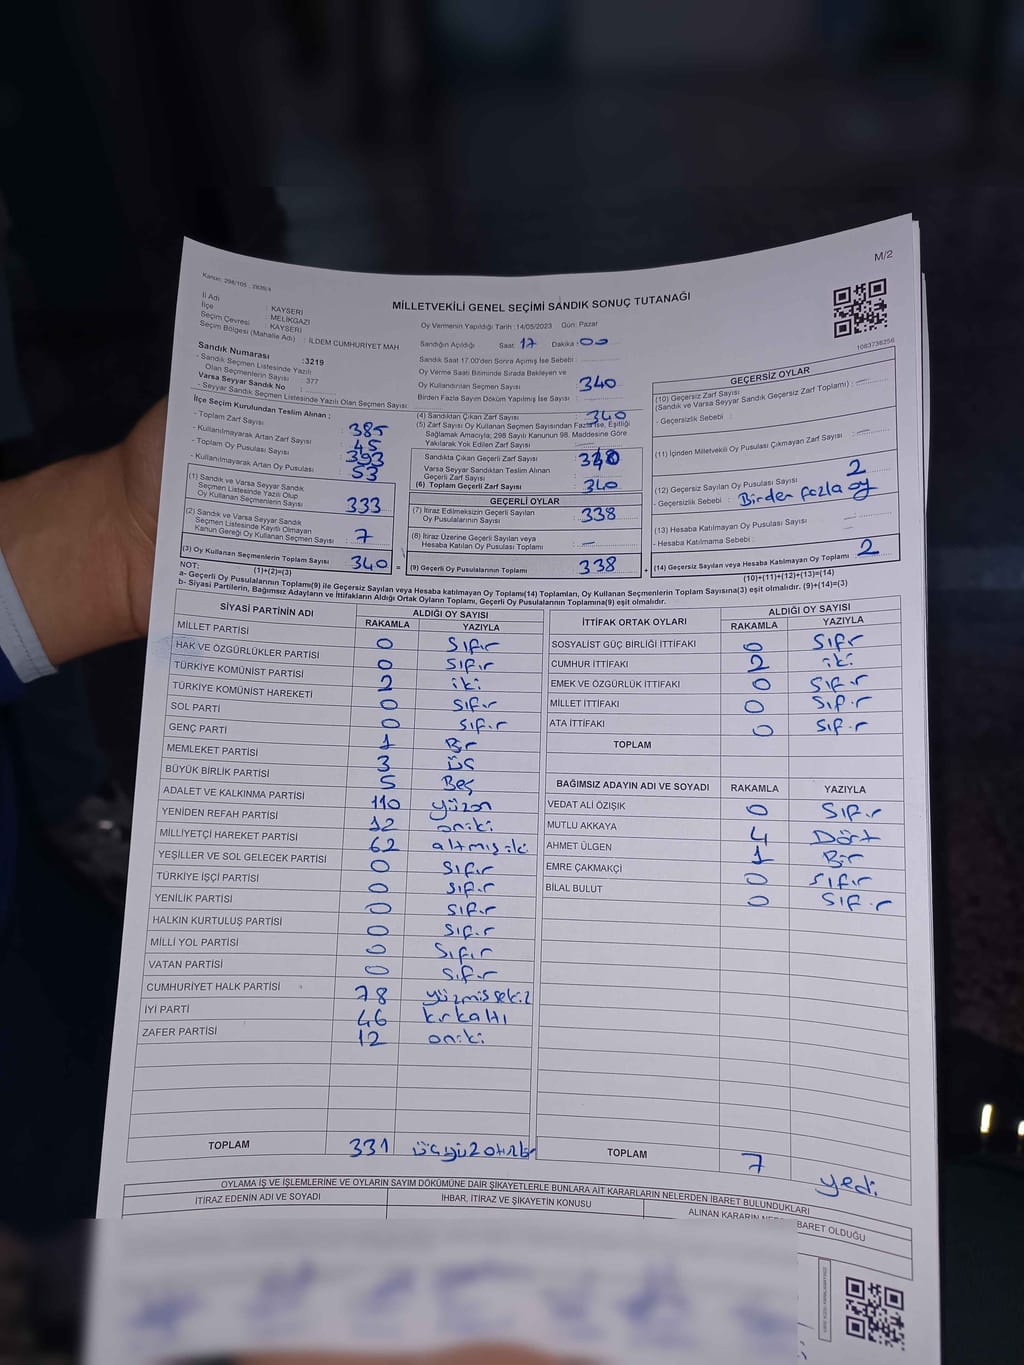 M/2
Kanun: 298/105 , 2839/4
MİLLETVEKİLİ GENEL SEÇİMİ SANDIK SONUÇ TUTANAĞI
İl Adı : KAYSERİ
İlçe : MELİKGAZİ
Seçim Çevresi : KAYSERİ
Seçim Bölgesi (Mahalle Adı) : İLDEM CUMHURİYET MAH
Sandık Numarası :3219
- Sandık Seçmen Listesinde Yazılı
Olan Seçmenlerin Sayısı : 377
Varsa Seyyar Sandık No :
- Seyyar Sandık Seçmen Listesinde Yazılı Olan Seçmen Sayısı
İlçe Seçim Kurulundan Teslim Alınan :
- Toplam Zarf Sayısı : 385
- Kullanılmayarak Artan Zarf Sayısı : 45
- Toplam Oy Pusulası Sayısı : 393
- Kullanılmayarak Artan Oy Pusulası : 53
(1) Sandık ve Varsa Seyyar Sandık
Seçmen Listesinde Yazılı Olup
Oy Kullanan Seçmenlerin Sayısı 333
(2) Sandık ve Varsa Seyyar Sandık
Seçmen Listesinde Kayıtlı Olmayan
Kanun Gereği Oy Kullanan Seçmen Sayısı 7
(3) Oy Kullanan Seçmenlerin Toplam Sayısı 340 =
(1)+(2)=(3)
Oy Vermenin Yapıldığı Tarih :14/05/2023 Gün: Pazar
Sandığın Açıldığı Saat: 17 Dakika : 00
Sandık Saat 17.00'den Sonra Açımış İse Sebebi :
Oy Verme Saati Bitiminde Sırada Bekleyen ve
Oy Kullandırılan Seçmen Sayısı 340
Birden Fazla Sayım Döküm Yapılmış İse Sayısı :
(4) Sandıktan Çıkan Zarf Sayısı 340
(5) Zarf Sayısı Oy Kullanan Seçmen Sayısından Fazla ise, Eşitliği
Sağlamak Amacıyla; 298 Sayılı Kanunun 98. Maddesine Göre
Yakılarak Yok Edilen Zarf Sayısı
Sandıkta Çıkan Geçerli Zarf Sayısı 340
Varsa Seyyar Sandıktan Teslim Alınan
Geçerli Zarf Sayısı
(6) Toplam Geçerli Zarf Sayısı 340
GEÇERLİ OYLAR
(7) İtiraz Edilmeksizin Geçerli Sayılan
Oy Pusulalarının Sayısı 338
(8) İtiraz Üzerine Geçerli Sayılan veya
Hesaba Katılan Oy Pusulası Toplamı
(9) Geçerli Oy Pusulalarının Toplamı 338 +
1083738256
GEÇERSİZ OYLAR
(10) Geçersiz Zarf Sayısı
(Sandık ve Varsa Seyyar Sandık Geçersiz Zarf Toplamı) :
- Geçersizlik Sebebi :
(11) İçinden Milletvekili Oy Pusulası Çıkmayan Zarf Sayısı
(12) Geçersiz Sayılan Oy Pusulası Sayısı 2
- Geçersizlik Sebebi : Birden fazla oy
(13) Hesaba Katılmayan Oy Pusulası Sayısı
- Hesaba Katılmama Sebebi :
(14) Geçersiz Sayılan veya Hesaba Katılmayan Oy Toplamı 2
(10)+(11)+(12)+(13)=(14)
NOT:
a- Geçerli Oy Pusulalarının Toplamı(9) ile Geçersiz Sayılan veya Hesaba katılmayan Oy Toplamı(14) Toplamları, Oy Kullanan Seçmenlerin Toplam Sayısına(3) eşit olmalıdır. (9)+(14)=(3)
b- Siyasi Partilerin, Bağımsız Adayların ve İttifakların Aldığı Ortak Oyların Toplamı, Geçerli Oy Pusulalarının Toplamına(9) eşit olmalıdır.
SİYASİ PARTİNİN ADI ALDIĞI OY SAYISI
RAKAMLA YAZIYLA
MİLLET PARTİSİ 0 Sıfır
HAK VE ÖZGÜRLÜKLER PARTİSİ 0 Sıfır
TÜRKİYE KOMÜNİST PARTİSİ 2 iki
TÜRKİYE KOMÜNİST HAREKETİ 0 Sıfır
SOL PARTİ 0 Sıfır
GENÇ PARTİ 1 Bir
MEMLEKET PARTİSİ 3 üç
BÜYÜK BİRLİK PARTİSİ 5 Beş
ADALET VE KALKINMA PARTİSİ 110 yüzon
YENİDEN REFAH PARTİSİ 12 oniki
MİLLİYETÇİ HAREKET PARTİSİ 62 altmışiki
YEŞİLLER VE SOL GELECEK PARTİSİ 0 Sıfır
TÜRKİYE İŞÇİ PARTİSİ 0 Sıfır
YENİLİK PARTİSİ 0 Sıfır
HALKIN KURTULUŞ PARTİSİ 0 Sıfır
MİLLİ YOL PARTİSİ 0 Sıfır
VATAN PARTİSİ 0 Sıfır
CUMHURİYET HALK PARTİSİ 78 yüzmişsekiz
İYİ PARTİ 46 kırkaltı
ZAFER PARTİSİ 12 oniki
TOPLAM 331
İTTİFAK ORTAK OYLARI ALDIĞI OY SAYISI
RAKAMLA YAZIYLA
SOSYALİST GÜÇ BİRLİĞİ İTTİFAKI 0 Sıfır
CUMHUR İTTİFAKI 2 iki
EMEK VE ÖZGÜRLÜK İTTİFAKI 0 Sıfır
MİLLET İTTİFAKI 0 Sıfır
ATA İTTİFAKI 0 Sıfır
TOPLAM
BAĞIMSIZ ADAYIN ADI VE SOYADI RAKAMLA YAZIYLA
VEDAT ALİ ÖZIŞIK 0 Sıfır
MUTLU AKKAYA 4 Dört
AHMET ÜLGEN 1 Bir
EMRE ÇAKMAKÇİ 0 Sıfır
BİLAL BULUT 0 Sıfır
TOPLAM 7 yedi
OYLAMA İŞ VE İŞLEMLERİNE VE OYLARIN SAYIM DÖKÜMÜNE DAİR ŞİKAYETLERLE BUNLARA AİT KARARLARIN NELERDEN İBARET BULUNDUKLARI
İTİRAZ EDENİN ADI VE SOYADI İHBAR, İTİRAZ VE ŞİKAYETİN KONUSU ALINAN KARARIN BARET OLDUĞU